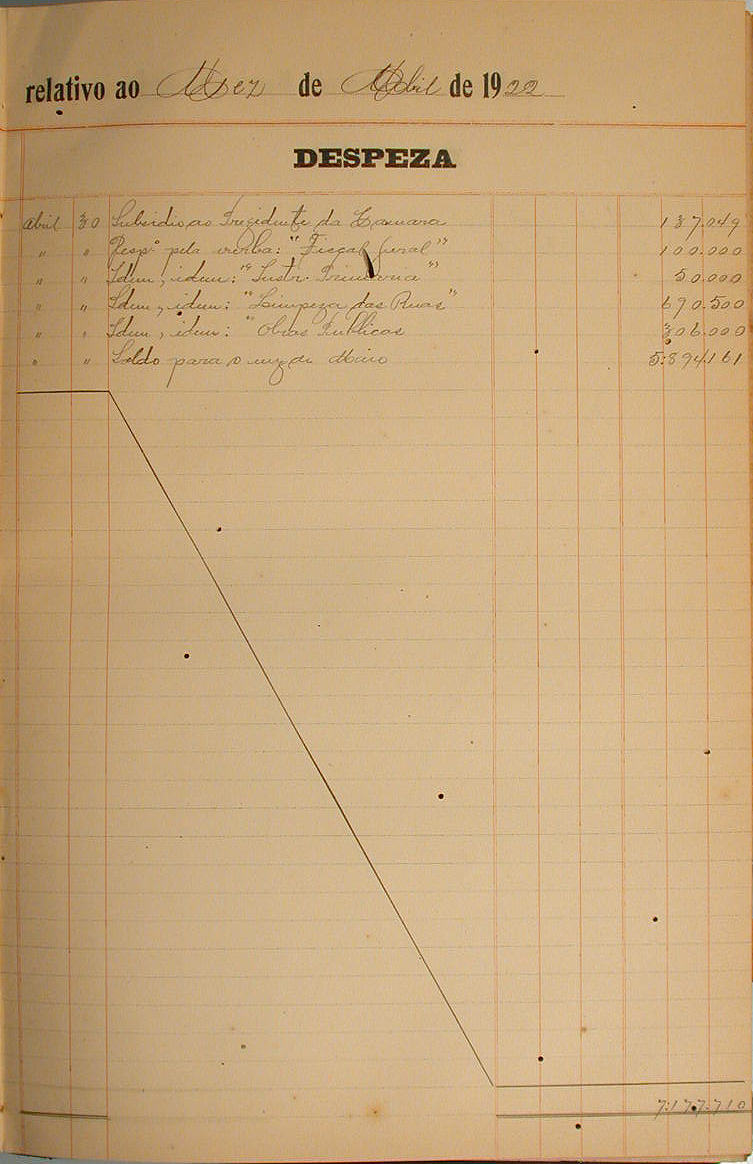 relativo ao Mez de Abril de 1922
DESPEZA
Abril 30 Subsidio ao Prezidente da Camara 137.049
" " Desp.ª pela verba: "Fiscal Geral" 100.000
" " Idem, idem: "Instr. Primaria" 50.000
" " Idem, idem: "Limpeza das Ruas" 690.500
" " Idem, idem: "Obras Publicas 306.000
" " Saldo para o mez de Maio 5:894.161
7:177.710